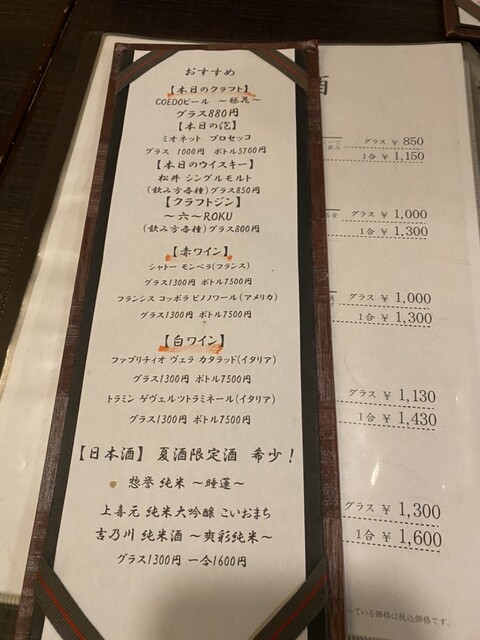 おすすめ
【本日のクラフト】
COEDOビール ～毬花～
グラス880円
【本日の泡】
ミオネット プロセッコ
グラス 1000円 ボトル5700円
【本日のウイスキー】
松井 シングルモルト
(飲み方各種)グラス850円
【クラフトジン】
～六～ROKU
(飲み方各種)グラス800円
【赤ワイン】
シャトー モンペラ(フランス)
グラス1300円 ボトル7500円
フランシス コッポラ ピノノワール(アメリカ)
グラス1300円 ボトル7500円
【白ワイン】
ファブリチィオ ヴェラ カタラッド(イタリア)
グラス1300円 ボトル7500円
トラミン ゲヴェルツトラミネール(イタリア)
グラス1300円 ボトル7500円
【日本酒】 夏酒限定酒 希少！
惣誉 純米 ～睡蓮～
上喜元 純米大吟醸 こいおまち
吉乃川 純米酒 ～爽彩純米～
グラス1300円 一合1600円
酒
グラス ¥ 850
1合 ¥ 1,150
グラス ¥ 1,000
1合 ¥ 1,300
グラス ¥ 1,000
1合 ¥ 1,300
グラス ¥ 1,130
1合 ¥ 1,430
グラス ¥ 1,300
1合 ¥ 1,600
ている価格は税込価格です。